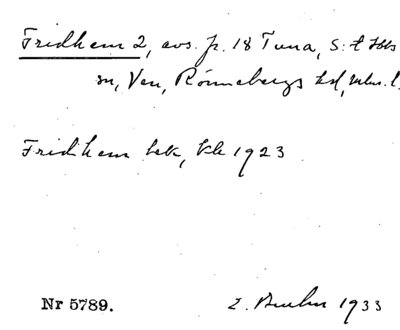 Fridhem 2, avs. fr. 18 Tuna, S:t Ibbs
sn, Ven, Rönnebergs hd, Mlm. l.
Fridhem bek, kk 1923
Nr 5789. 2. 1933